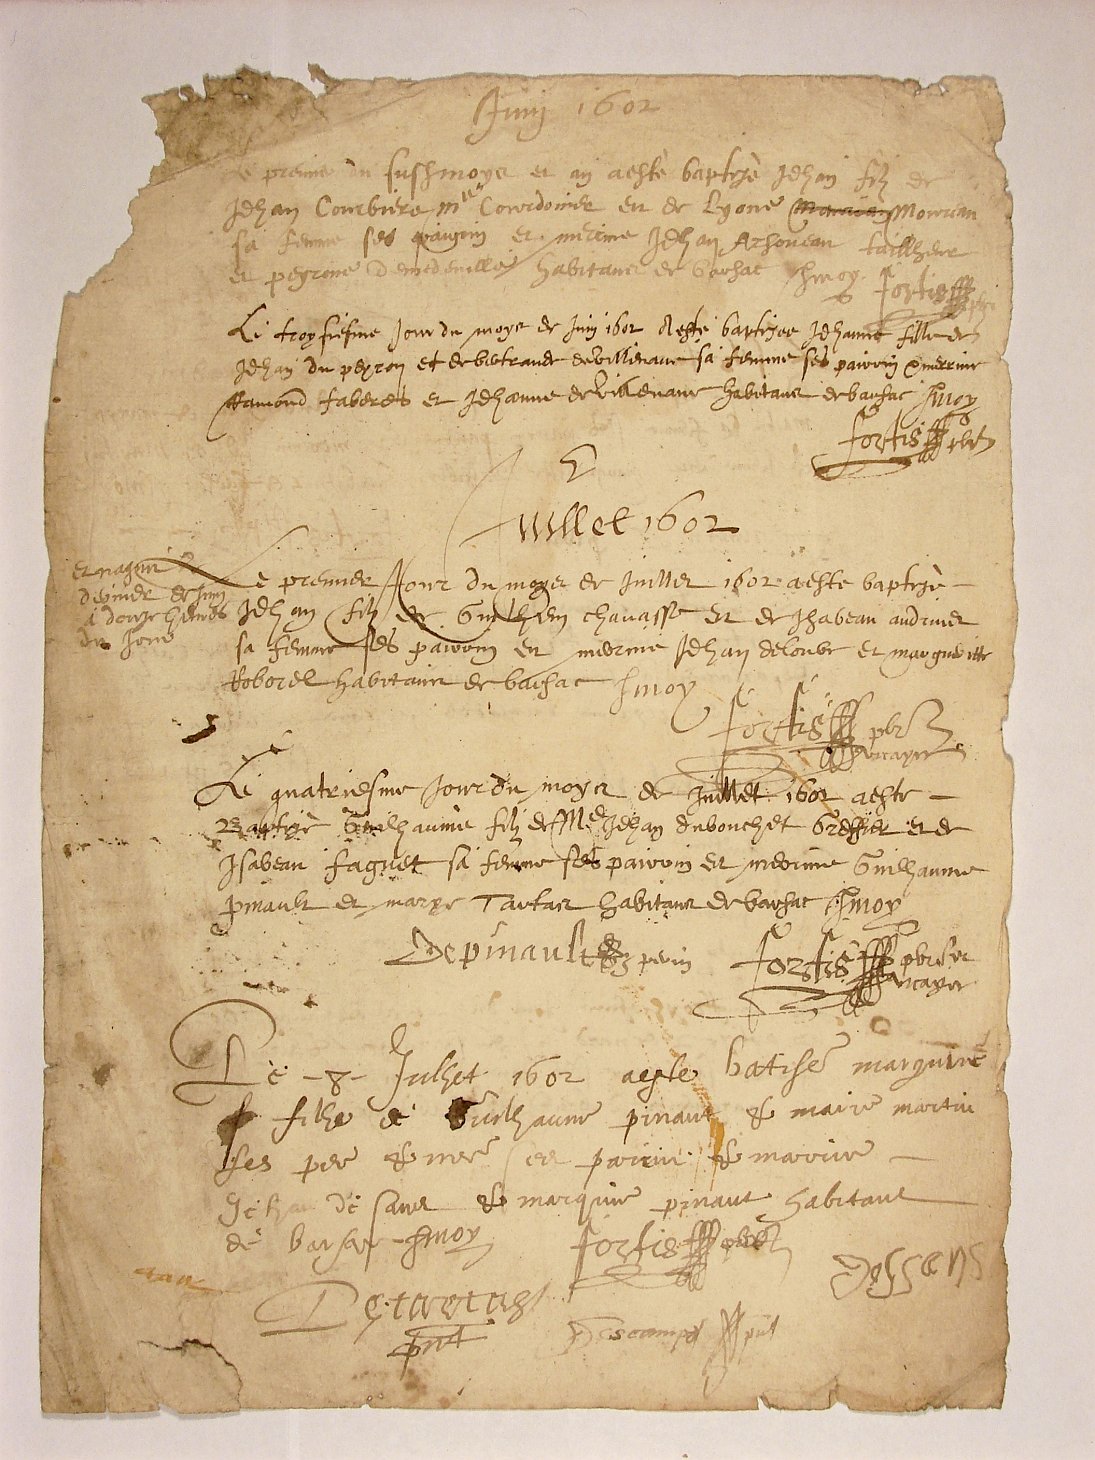 Juin 1602
Le premie du susd moys et an aeste baptizé Jehan filz de
Jehan Courbiere me Courdonier et de Lyone Mourian
sa femme ses pairin et merine Jehan Arhoueau tailheur
et peyrone habitans de barsac f moy fortis
Le troysiesme Jour du moys de Juin 1602 Aesté baptizee Jehanne fille de
Jehan du peyron et de bertrande de villenaue sa femme ses pairin & merrine
Ramond faberes et Jehanne de villenaue habitans de barsac f moy
fortis pbr
Juillet 1602
Le premier Jour du moys de Juillet 1602 aeste baptizé
et de Juin
a douze heures
du Jour
Jehan filz de Guilhem chauasse et de Isabeau audinet
sa femme ses pairin et merine Jehan deloube et marguerite
Roborel habitans de barsac f moy
fortis pbr
vicayre
Le quatriesme Jour du moys de Juillet 1602 aeste
Baptizé Guilhaume filz de Me Jehan dubouchet Greffier et de
Isabeau faguet sa femme ses pairin et merine Guilhaume
pinault et marye Tartas habitans de barsac f moy
Depinault perin fortis pbr et
vicayre
Le -8- Julhet 1602 aeste batisee marguire
filhe de Guilhaume pinaut & marie martin
ses pere & mere ses parrin & marrine
Jehan de sans & marguire pinaut habitans
de barsac f moy fortis pbr
Dessans
pnt Descamps pnt